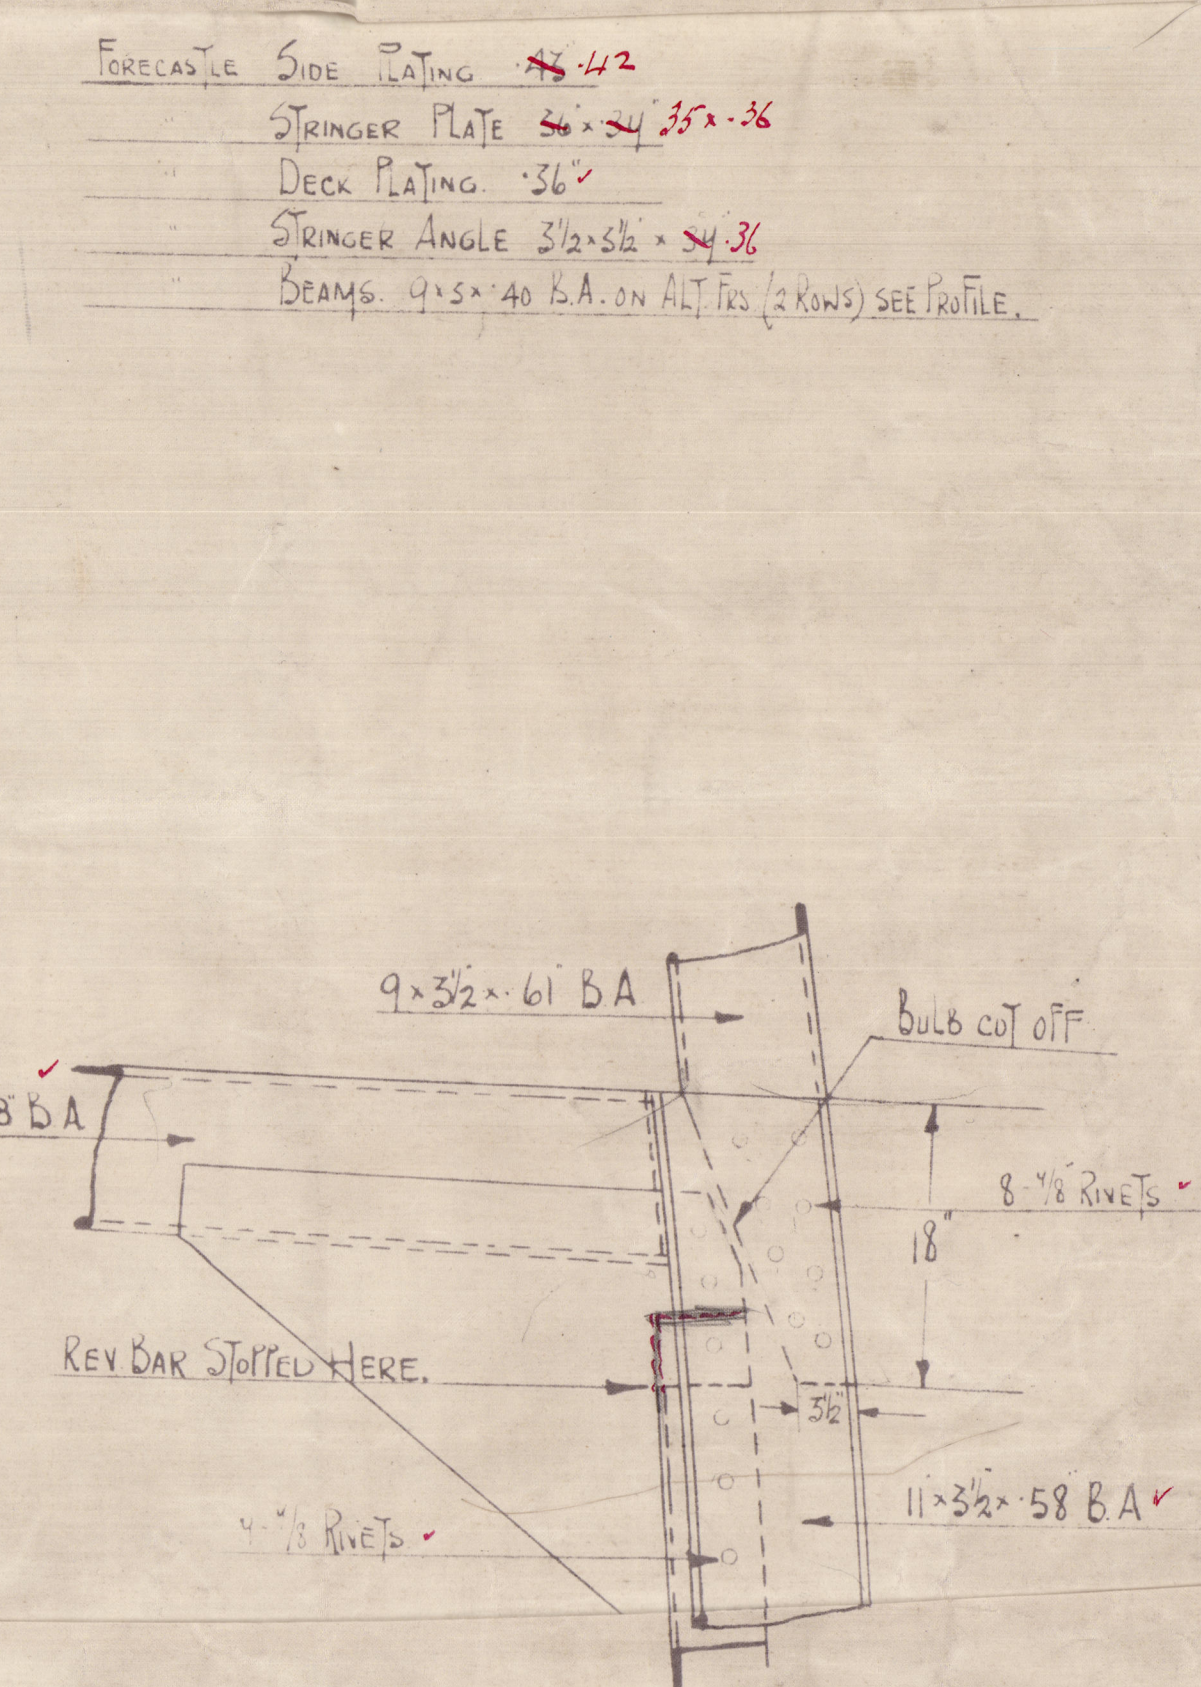 FORECASTLE SIDE PLATING .43" .42
" STRINGER PLATE 36 × .34" 35 × .36
" DECK PLATING. .36" ✓
" STRINGER ANGLE 3½ × 3½ × .34" .36
" BEAMS. 9 × 3 × .40 B.A. ON ALT. FRS (2 ROWS) SEE PROFILE.
9 × 3½ × .61" B.A
BULB CUT OFF
✓
8" B A
8 - ⅞" RIVETS ✓
18"
REV. BAR STOPPED HERE.
3½"
11 × 3½ × .58" B.A ✓
RIVETS ✓